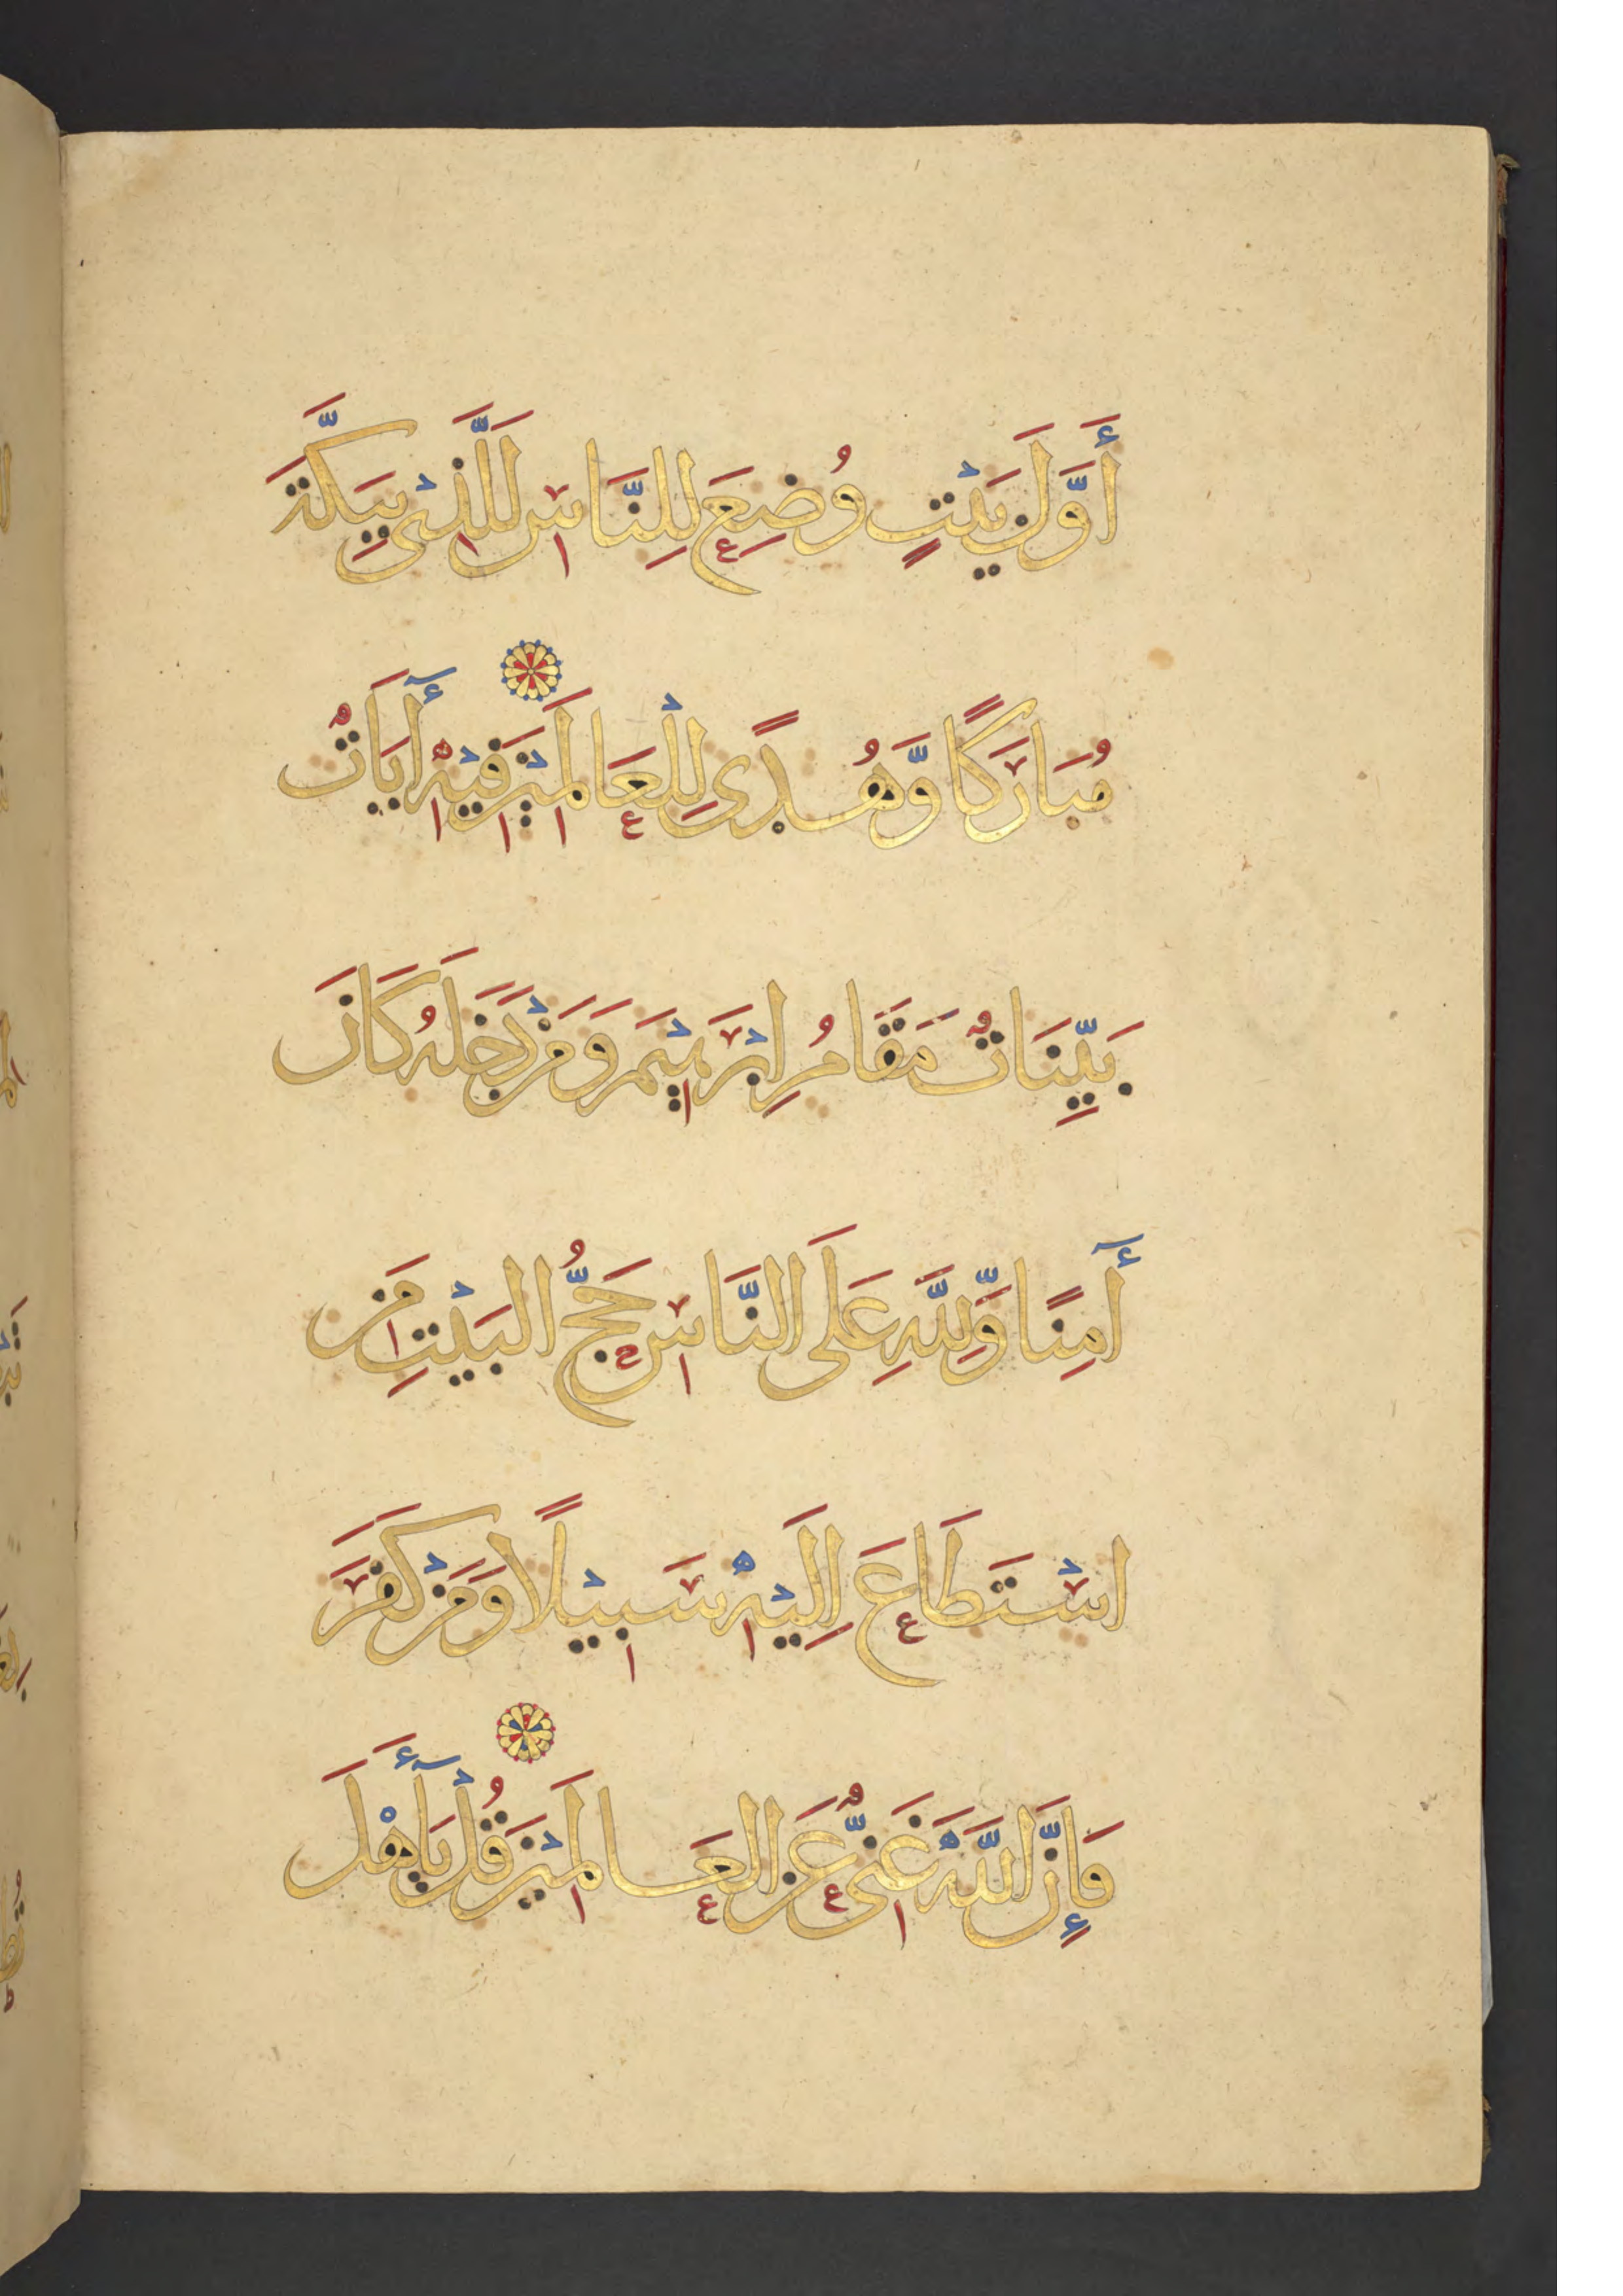 أَوَّلَ بَيْتٍ وُضِعَ لِلنَّاسِ لَلَّذِىْ بِبَكَّةَ
مُبَارَكًا وَّهُدًى لِلْعَالَمِيْنَ فِيْهِ آيَاتٌ
بَيِّنَاتٌ مَقَامُ اِبْرَهِيْمَ وَمَنْ دَخَلَهُ كَانَ
آمِنًا وَّلِلَّهِ عَلَى النَّاسِ حَجُّ الْبَيْتِ مَنِ
اسْتَطَاعَ اِلَيْهِ سَبِيْلًا وَمَنْ كَفَرَ
فَإِنَّ اللَّهَ غَنِىٌّ عَنِ الْعَالَمِيْنَ قُلْ يَآأَهْلَ